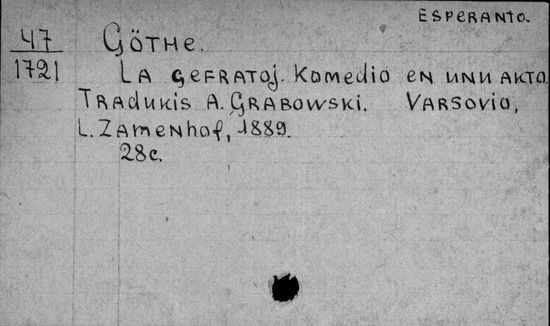 ESPERANTO.
47
1721
GÖTHE.
LA GEFRATOJ. KOMEDIO EN UNU AKTO.
TRADUKIS A. GRABOWSKI. VARSOVIO,
L. ZAMENHOF, 1889.
28c.